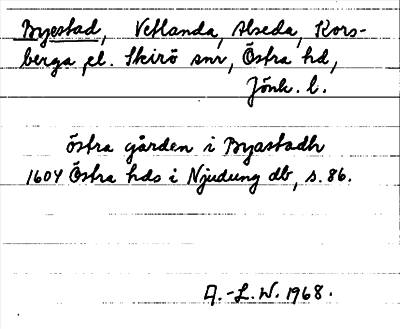 Byestad, Vetlanda, Alseda, Kors-
berga, el. Skirö snr, Östra hd,
Jönk. l.
östra gården i Byastadh
1604 Östra hds i Njudung db, s. 86.
A.-L. W. 1968.